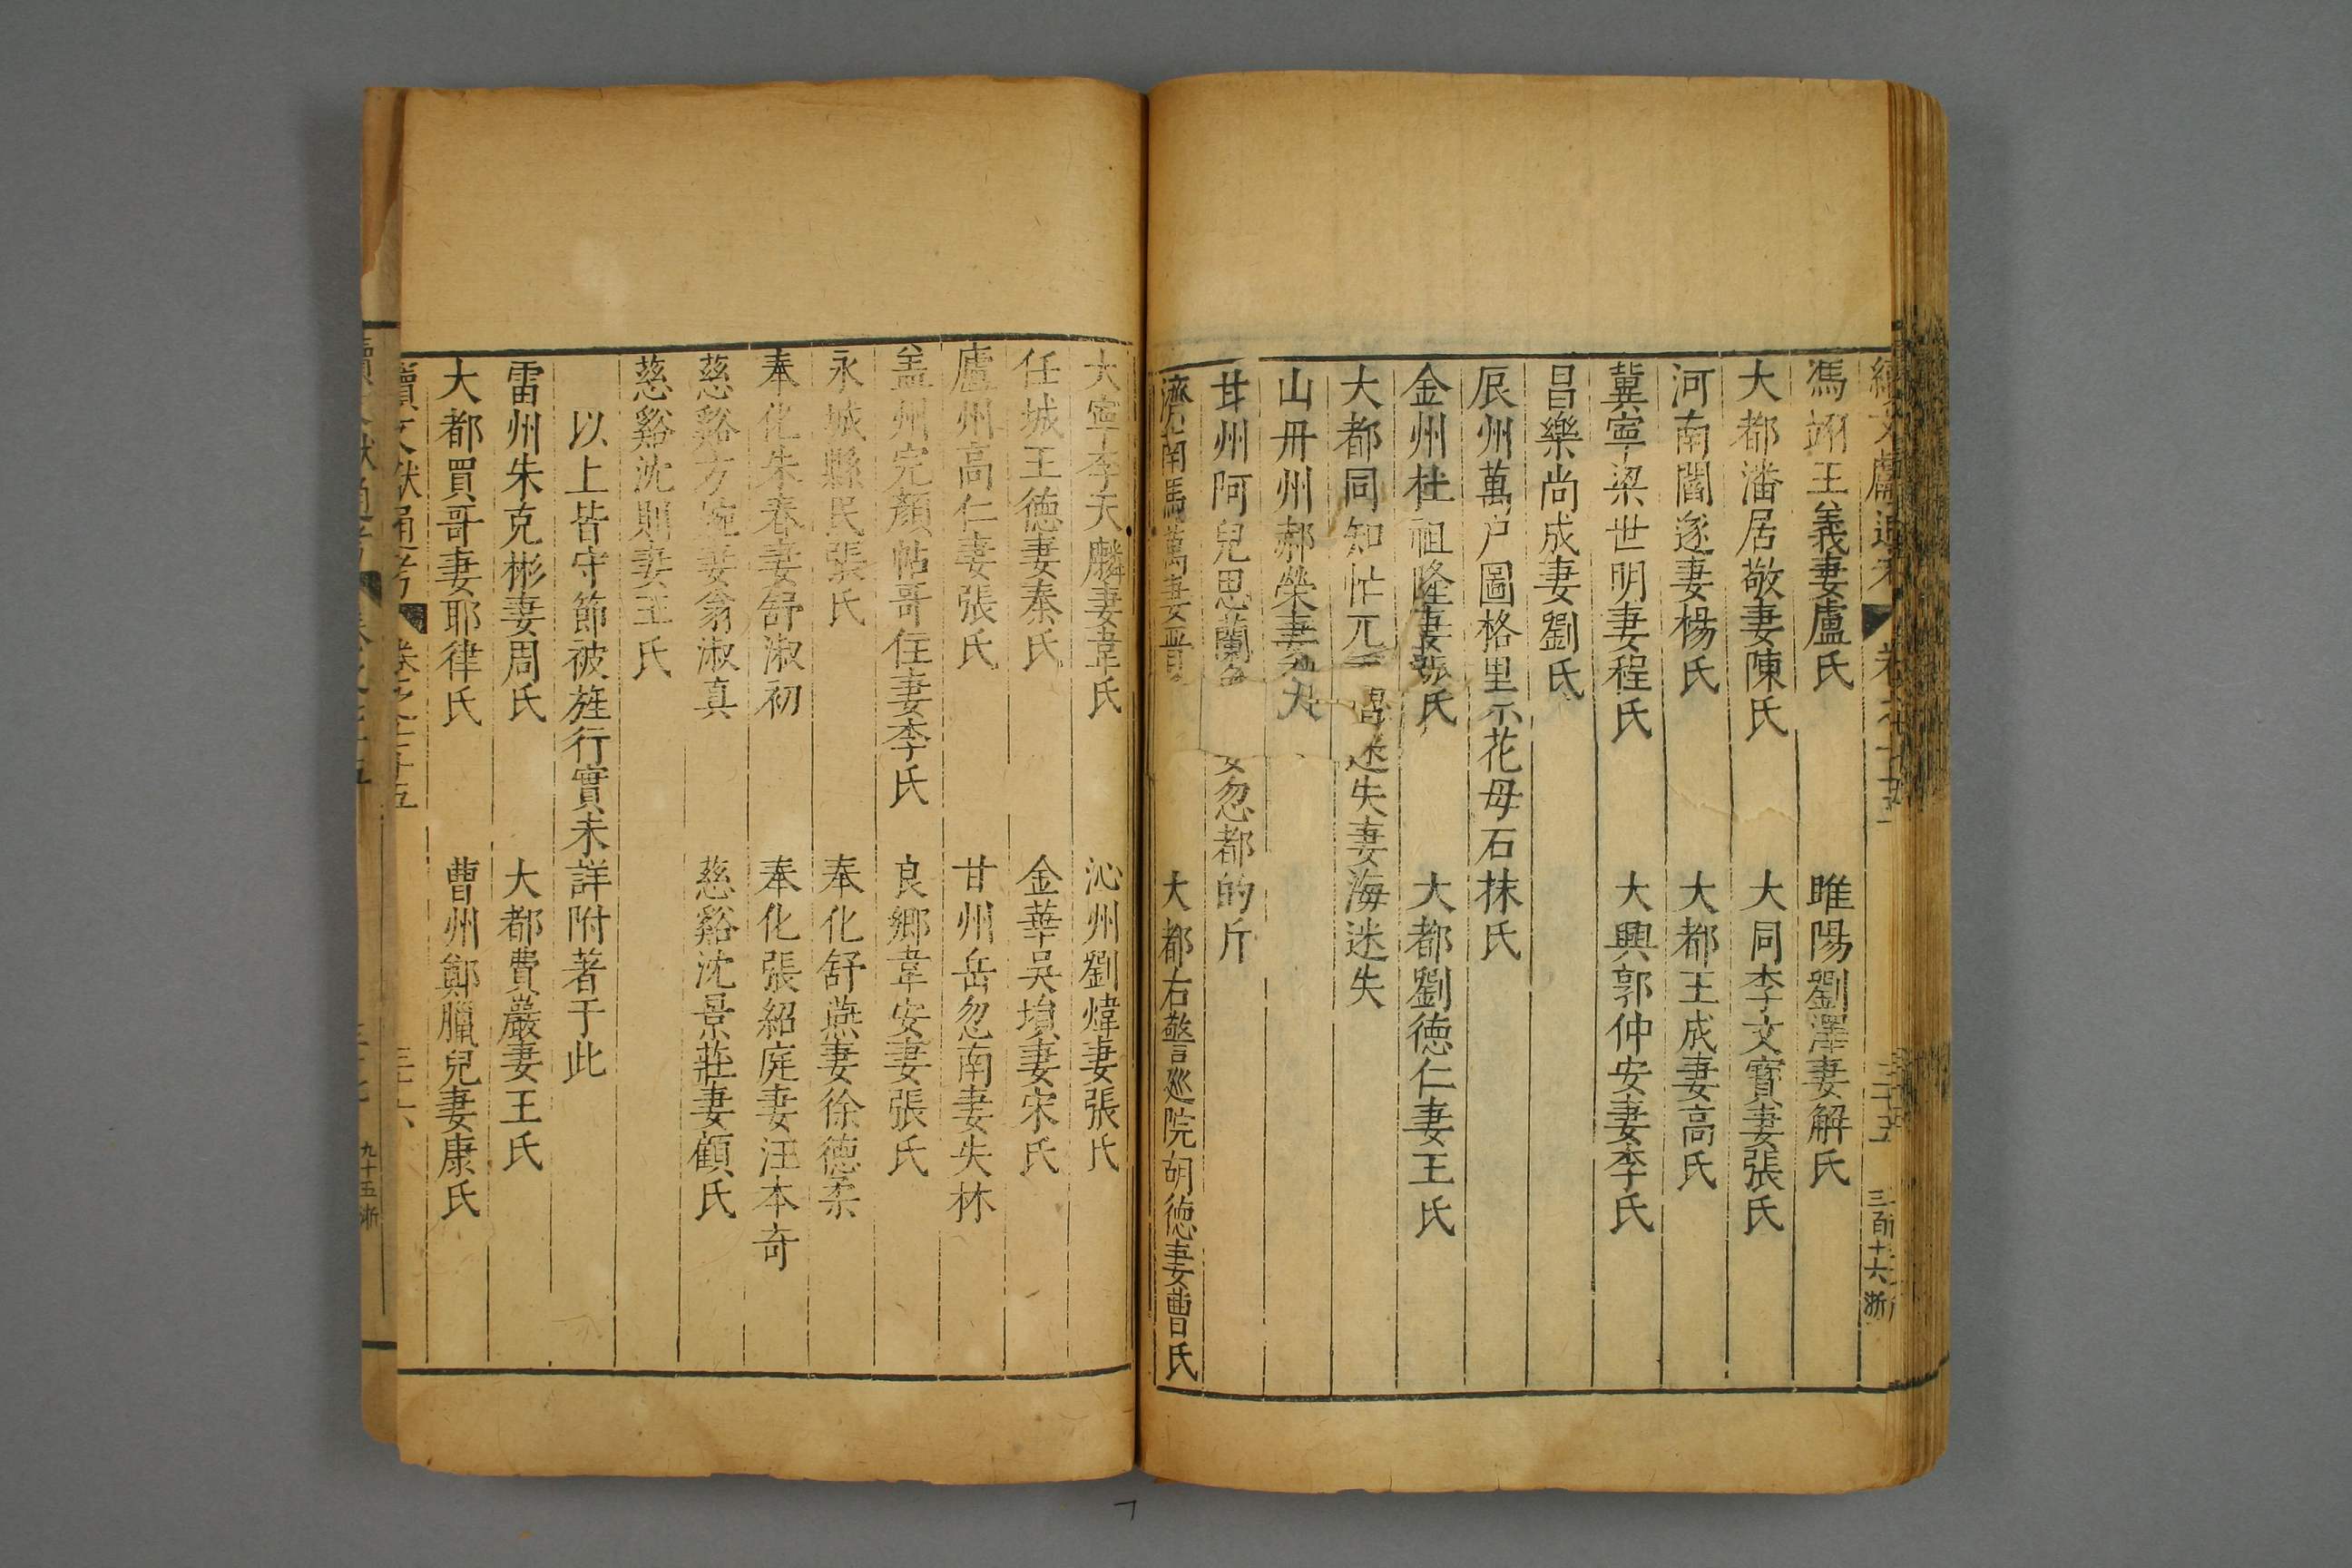 馮翊王義妻盧氏　睢陽劉澤妻解氏
大都潘居敬妻陳氏　大同李文實妻張氏
河南閻遂妻楊氏　大都王成妻高氏
冀寧梁世明妻程氏　大興郭仲安妻李氏
昌樂尚成妻劉氏
辰州萬户圖格里示花母石抹氏
金州杜祖隆妻張氏　大都劉德仁妻王氏
大都同知忙兀　迷失妻海迷失
山丹州郝榮妻
甘州阿兒思蘭　妻忽都的斤
濟南馬萬妻　大都右警巡院胡德妻曹氏
大寧李天麟妻韋氏　沁州劉煒妻張氏
任城王德妻秦氏　金華吳塤妻宋氏
廬州高仁妻張氏　甘州岳忽南妻失林
盖州完顔帖哥住妻李氏　良鄉韋安妻張氏
永城縣民張氏　奉化舒燕妻徐德柔
奉化朱春妻舒淑初　奉化張紹庭妻汪本奇
慈谿方　妻翁淑真　慈谿沈景莊妻顧氏
慈谿沈則妻王氏
以上皆守節被旌行實未詳附著于此
雷州朱克彬妻周氏　大都費巖妻王氏
大都買哥妻耶律氏　曹州鄭臘兒妻康氏
續文獻通考　卷之七十五　三十六
三百十六　浙
九十五　浙